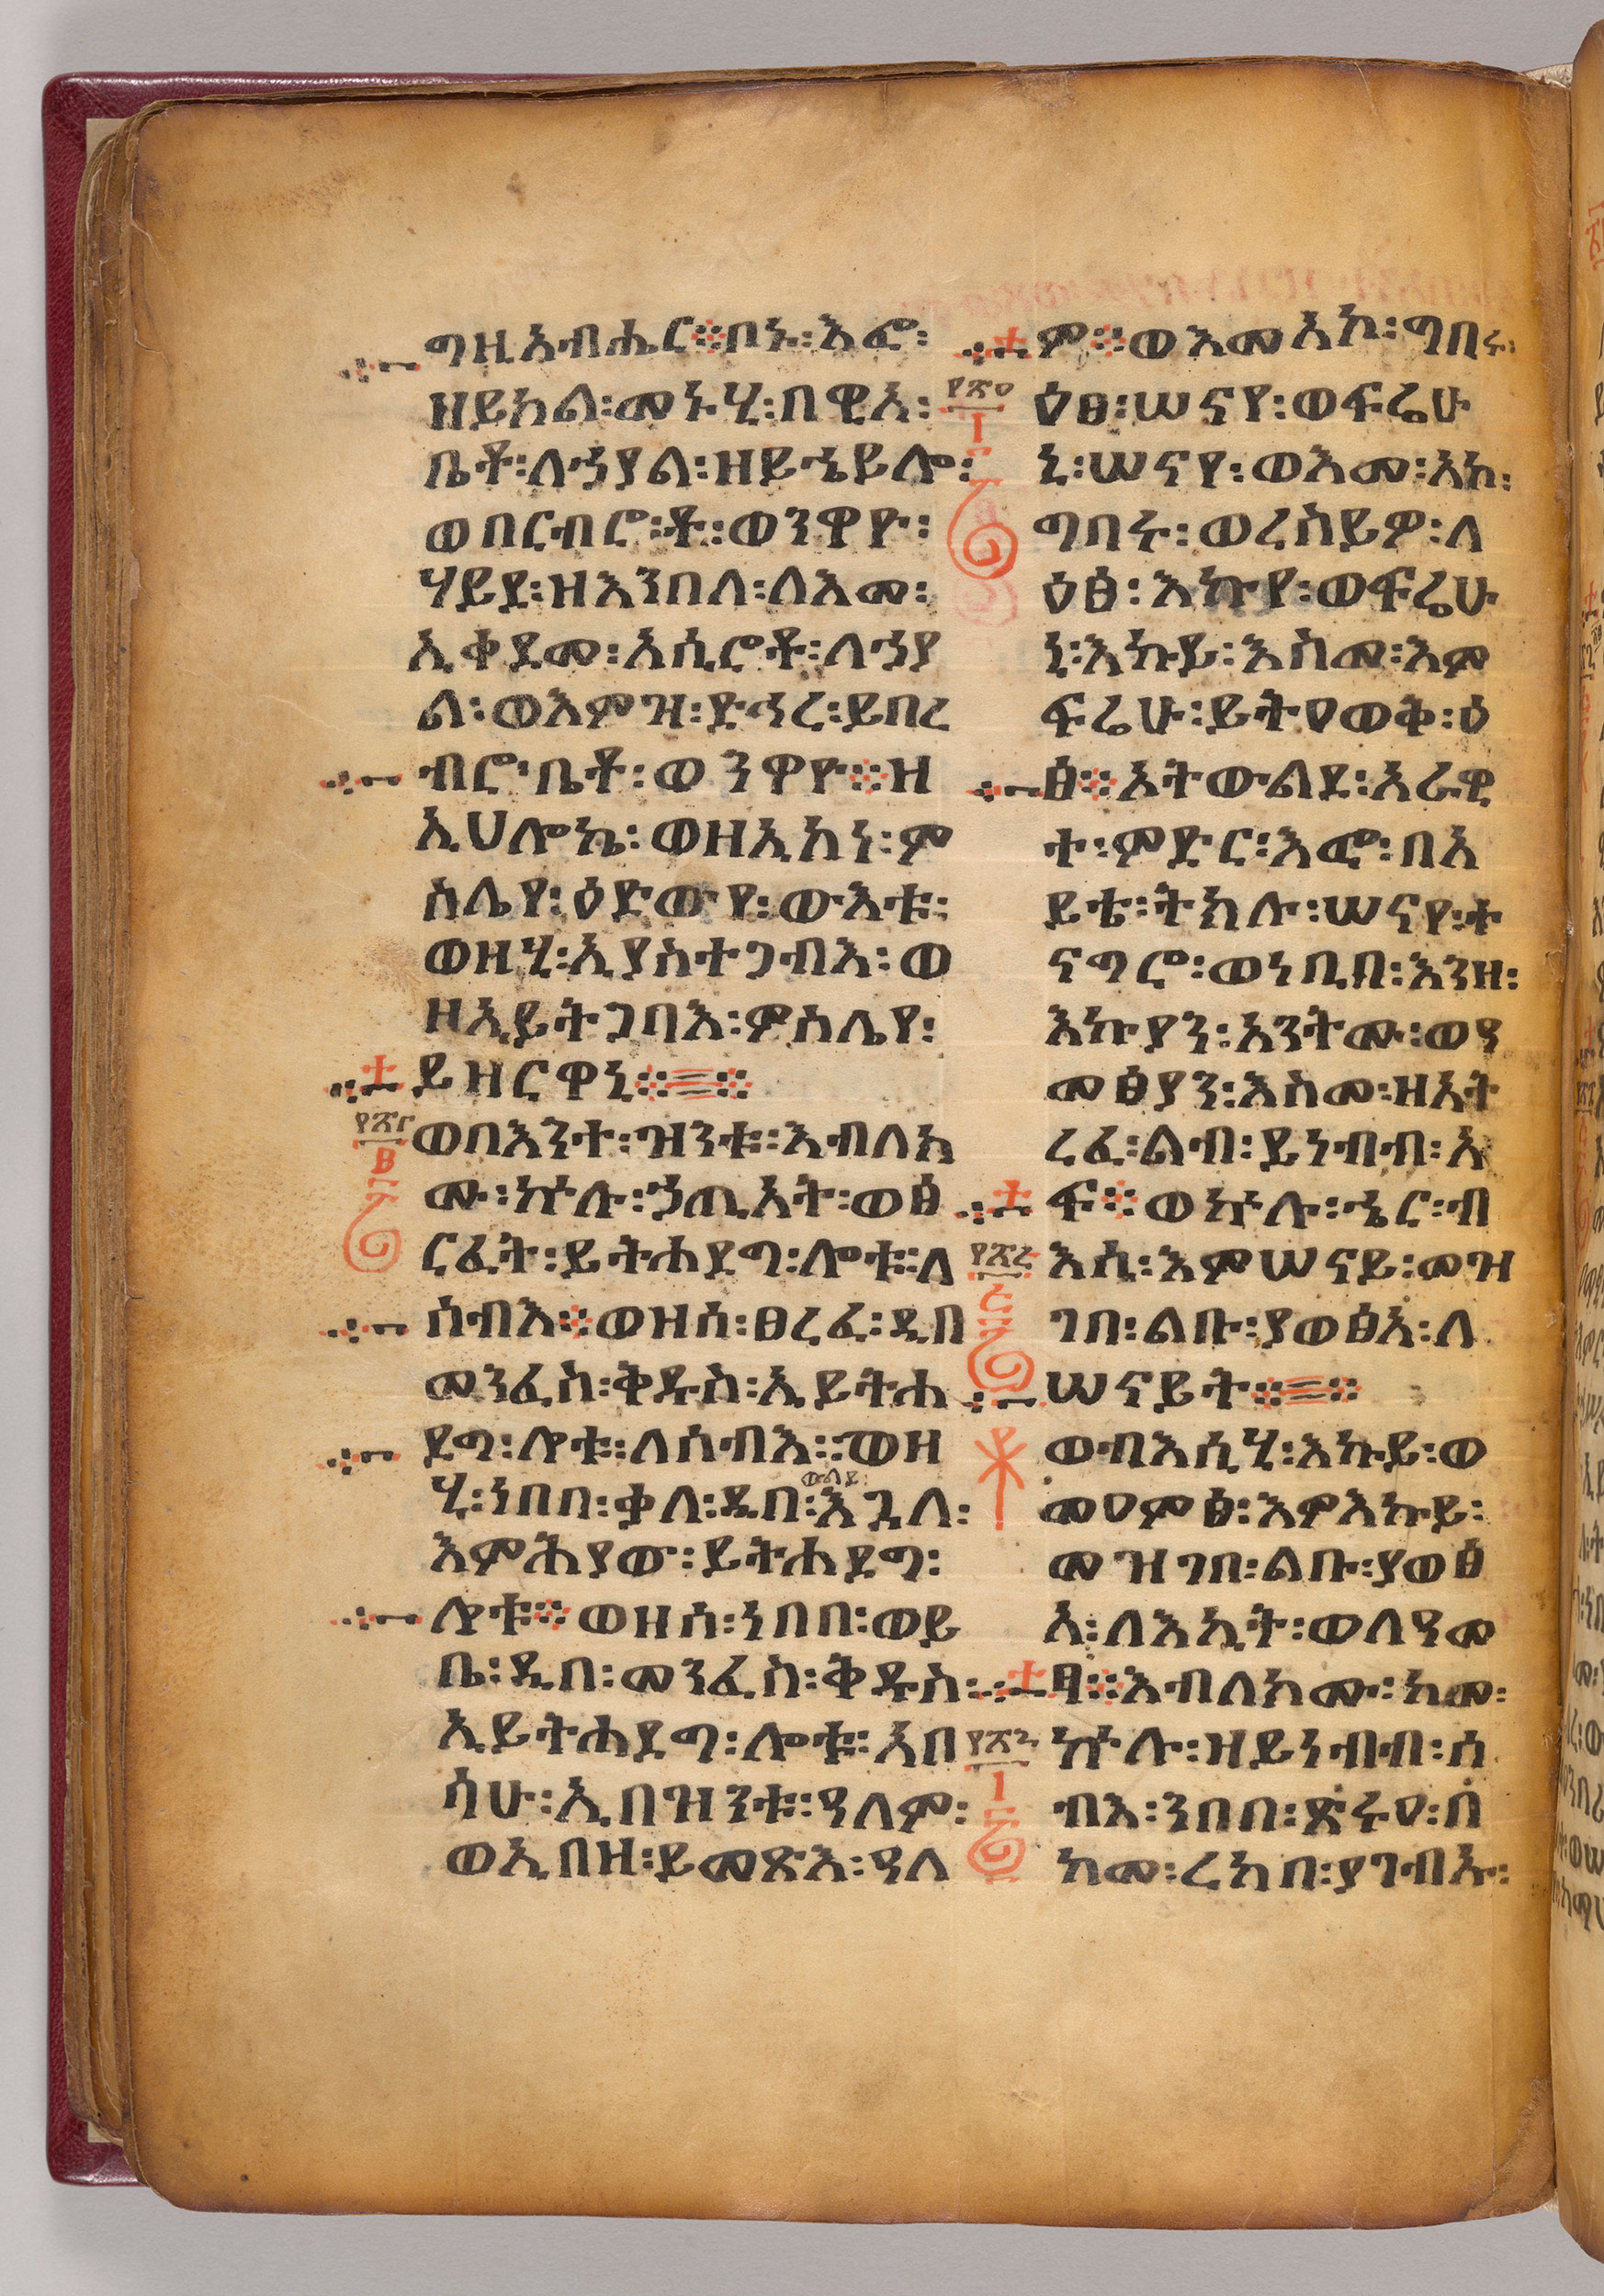 ግዚአብሔር፨ቦኑ፡እፎ፡
ዘይክል፡መኑሂ፡በዊአ፡
ቤቶ፡ለኃያል፡ዘይኄይሎ፡
ወበርብሮ፡ቶ፡ወንዋዮ፡
ሃይደ፡ዘእንበለ፡ለእመ፡
ኢቀደመ፡አሲሮቶ፡ለኃያ
ል፡ወእምዝ፡ድኅረ፡ይበረ
ብሮ፡ቤቶ፡ወንዋዮ፨ዝ
ኢሀሎኬ፡ወዘኢኮነ፡ም
ስሌየ፡ዕድውየ፡ውእቱ፡
ወዘሂ፡ኢያስተጋብአ፡ወ
ዘኢይትጋባእ፡ምስሌየ፡
ይዘርዋኒ፨
ወበእንተ፡ዝንቱ፡እብለክ
ሙ፡ኵሉ፡ኃጢአት፡ወፅ
ርፈት፡ይትሐደግ፡ሎቱ፡ለ
ሰብእ፨ወዘሰ፡ፀረፈ፡ዲበ
መንፈስ፡ቅዱስ፡ኢይትሐ
ደግ፡ሎቱ፡ለሰብእ፡ወዘ
ውልደ፡
ሂ፡ነበበ፡ቃለ፡ዲበ፡እጓለ፡
እምሕያው፡ይትሐደግ፡
ሎቱ፨ወዘሰ፡ነበበ፡ወይ
ቤ፡ዲበ፡መንፈስ፡ቅዱስ፡
ኢይትሐደግ፡ሎቱ፡አበ
ሳሁ፡ኢበዝንቱ፡ዓለም፡
ወኢበዘ፡ይመጽእ፡ዓለ
ም፨ወእመአኮ፡ግበሩ፡
ዕፀ፡ሠናየ፡ወፍሬሁ
ኒ፡ሠናየ፡ወእመ፡አኮ፡
ግበሩ፡ወረስይዎ፡ለ
ዕፅ፡እኩየ፡ወፍሬሁ
ኒ፡እኩይ፡እስመ፡እም
ፍሬሁ፡ይትዐወቅ፡ዕ
ፅ፨አትውልደ፡አራዊ
ተ፡ምድር፡እፎ፡በአ
ይቴ፡ትክሉ፡ሠናየ፡ተ
ናግሮ፡ወነቢበ፡እንዘ፡
እኩያን፡አንትሙ፡ወዓ
መፅያን፡እስመ፡ዘአት
ረፈ፡ልብ፡ይነብብ፡አ
ፍ፨ወኵሉ፡ኄር፡ብ
እሲ፡እምሠናይ፡መዝ
ገበ፡ልቡ፡ያወፅአ፡ለ
ሠናይት፨
ወብእሲሂ፡እኩይ፡ወ
መዐምፅ፡እምእኩይ፡
መዝገበ፡ልቡ፡ያወፅ
አ፡ለእኪት፡ወለዓመ
ፃ፨እብለክሙ፡ከመ፡
ኵሉ፡ዘይነብብ፡ሰ
ብእ፡ንበበ፡ጽሩዐ፡በ
ከመ፡ረከበ፡ያገብኡ፡